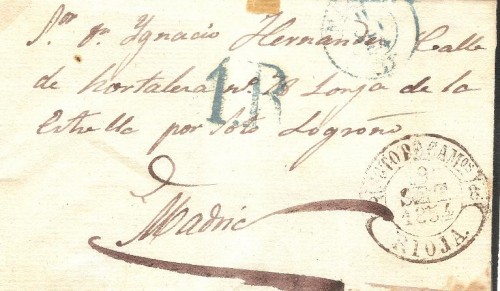 Sr Dn Ygnacio Hernandez Calle
de hortaleza no. 28 Lonja de la
Estrella por Soto Logroño
Madrid
1R
8
SET
1854
RIOJA.